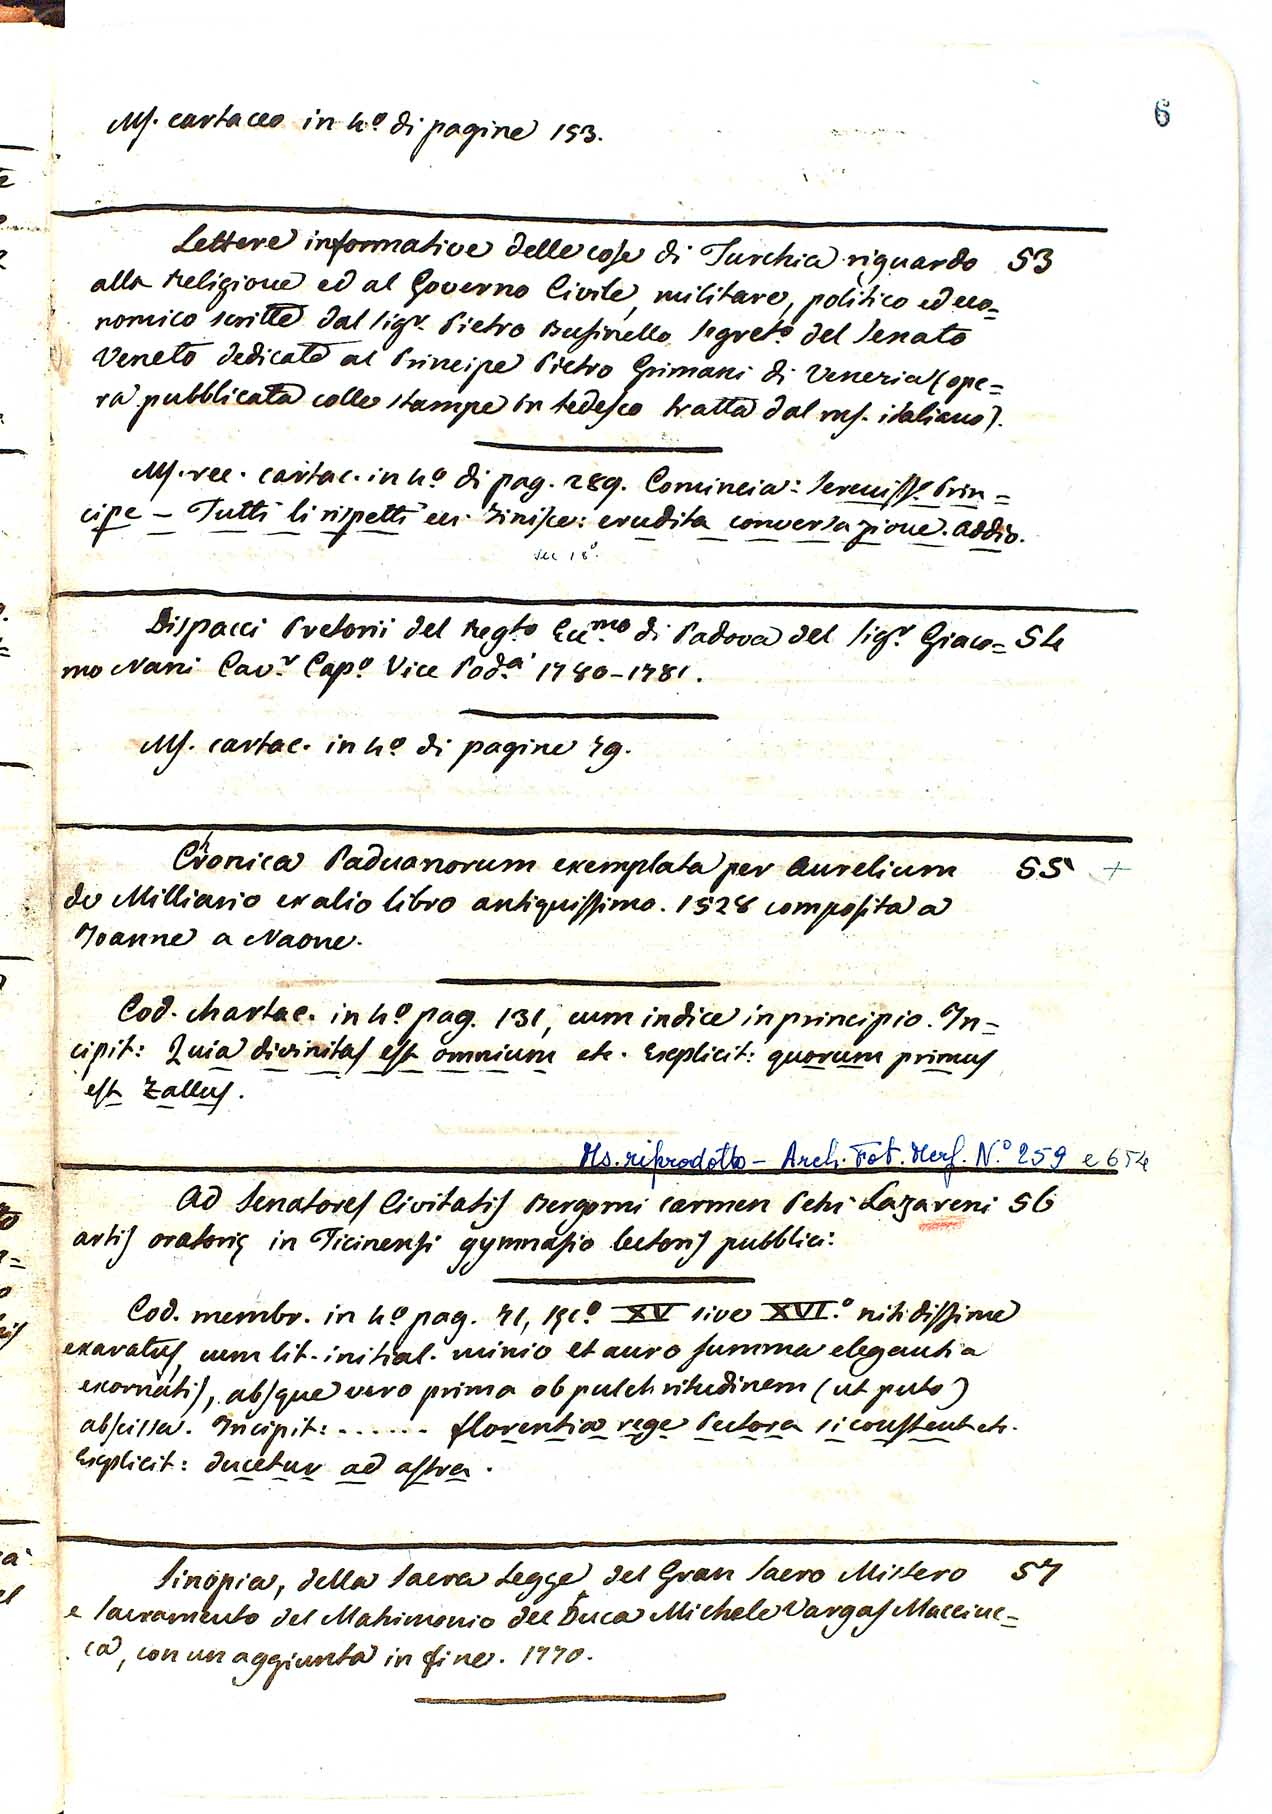 6
Ms. cartaceo in 4.º di pagine 153.
Lettere informative delle cose di Turchia riguardo 53
alla Religione ed al Governo Civile, militare, politico ed eco=
nomico scritte dal Sigr. Pietro Businello Segret.º del Senato
Veneto dedicate al Principe Pietro Grimani di Venezia (ope=
ra pubblicata colle stampe in tedesco tratta dal ms. italiano).
Ms. rec. cartac. in 4.º di pag. 289. Comincia: Sereniss.º Prin=
cipe – Tutti li rispetti ecc. Finisce: erudita conversazione. Addio.
sec 18º.
Dispacci Pretorii del Regto Eccmo di Padova del Sigr Giaco= 54
mo Nani Cav.r Cap.º Vice Pod.à 1780–1781.
Ms. cartac. in 4.º di pagine 79.
Chronica Paduanorum exemplata per Aurelium 55 +
de Milliario ex alio libro antiquissimo. 1528 composita a
Joanne a Naone.
Cod. chartac. in 4.º pag. 131, cum indice in principio. In=
cipit: Quia divinitas est omnium etc. Explicit: quorum primus
est Zallus.
Ms. riprodotto – Arch. Fot. Mers. N.º 259 e 654
Ad Senatores Civitatis Bergomi carmen Petri Lazareni 56
artis oratorię in Ticinensi gymnasio lectoris pubblici:
Cod. membr. in 4.º pag. 71, sęc.º XV sive XVI.º nitidissime
exaratus, cum lit. initial. minio et auro summa elegantia
exornatis, absque vero prima ob pulchritudinem (ut puto)
abscissa. Incipit: ...... florentia rege Pectora si constent etc.
Explicit: ducetur ad astra.
Sinopia, della Sacra Legge del Gran Sacro Mistero 57
e Sacramento del Matrimonio del Duca Michele Vargas Macciuc=
ca, con un aggiunta in fine. 1770.